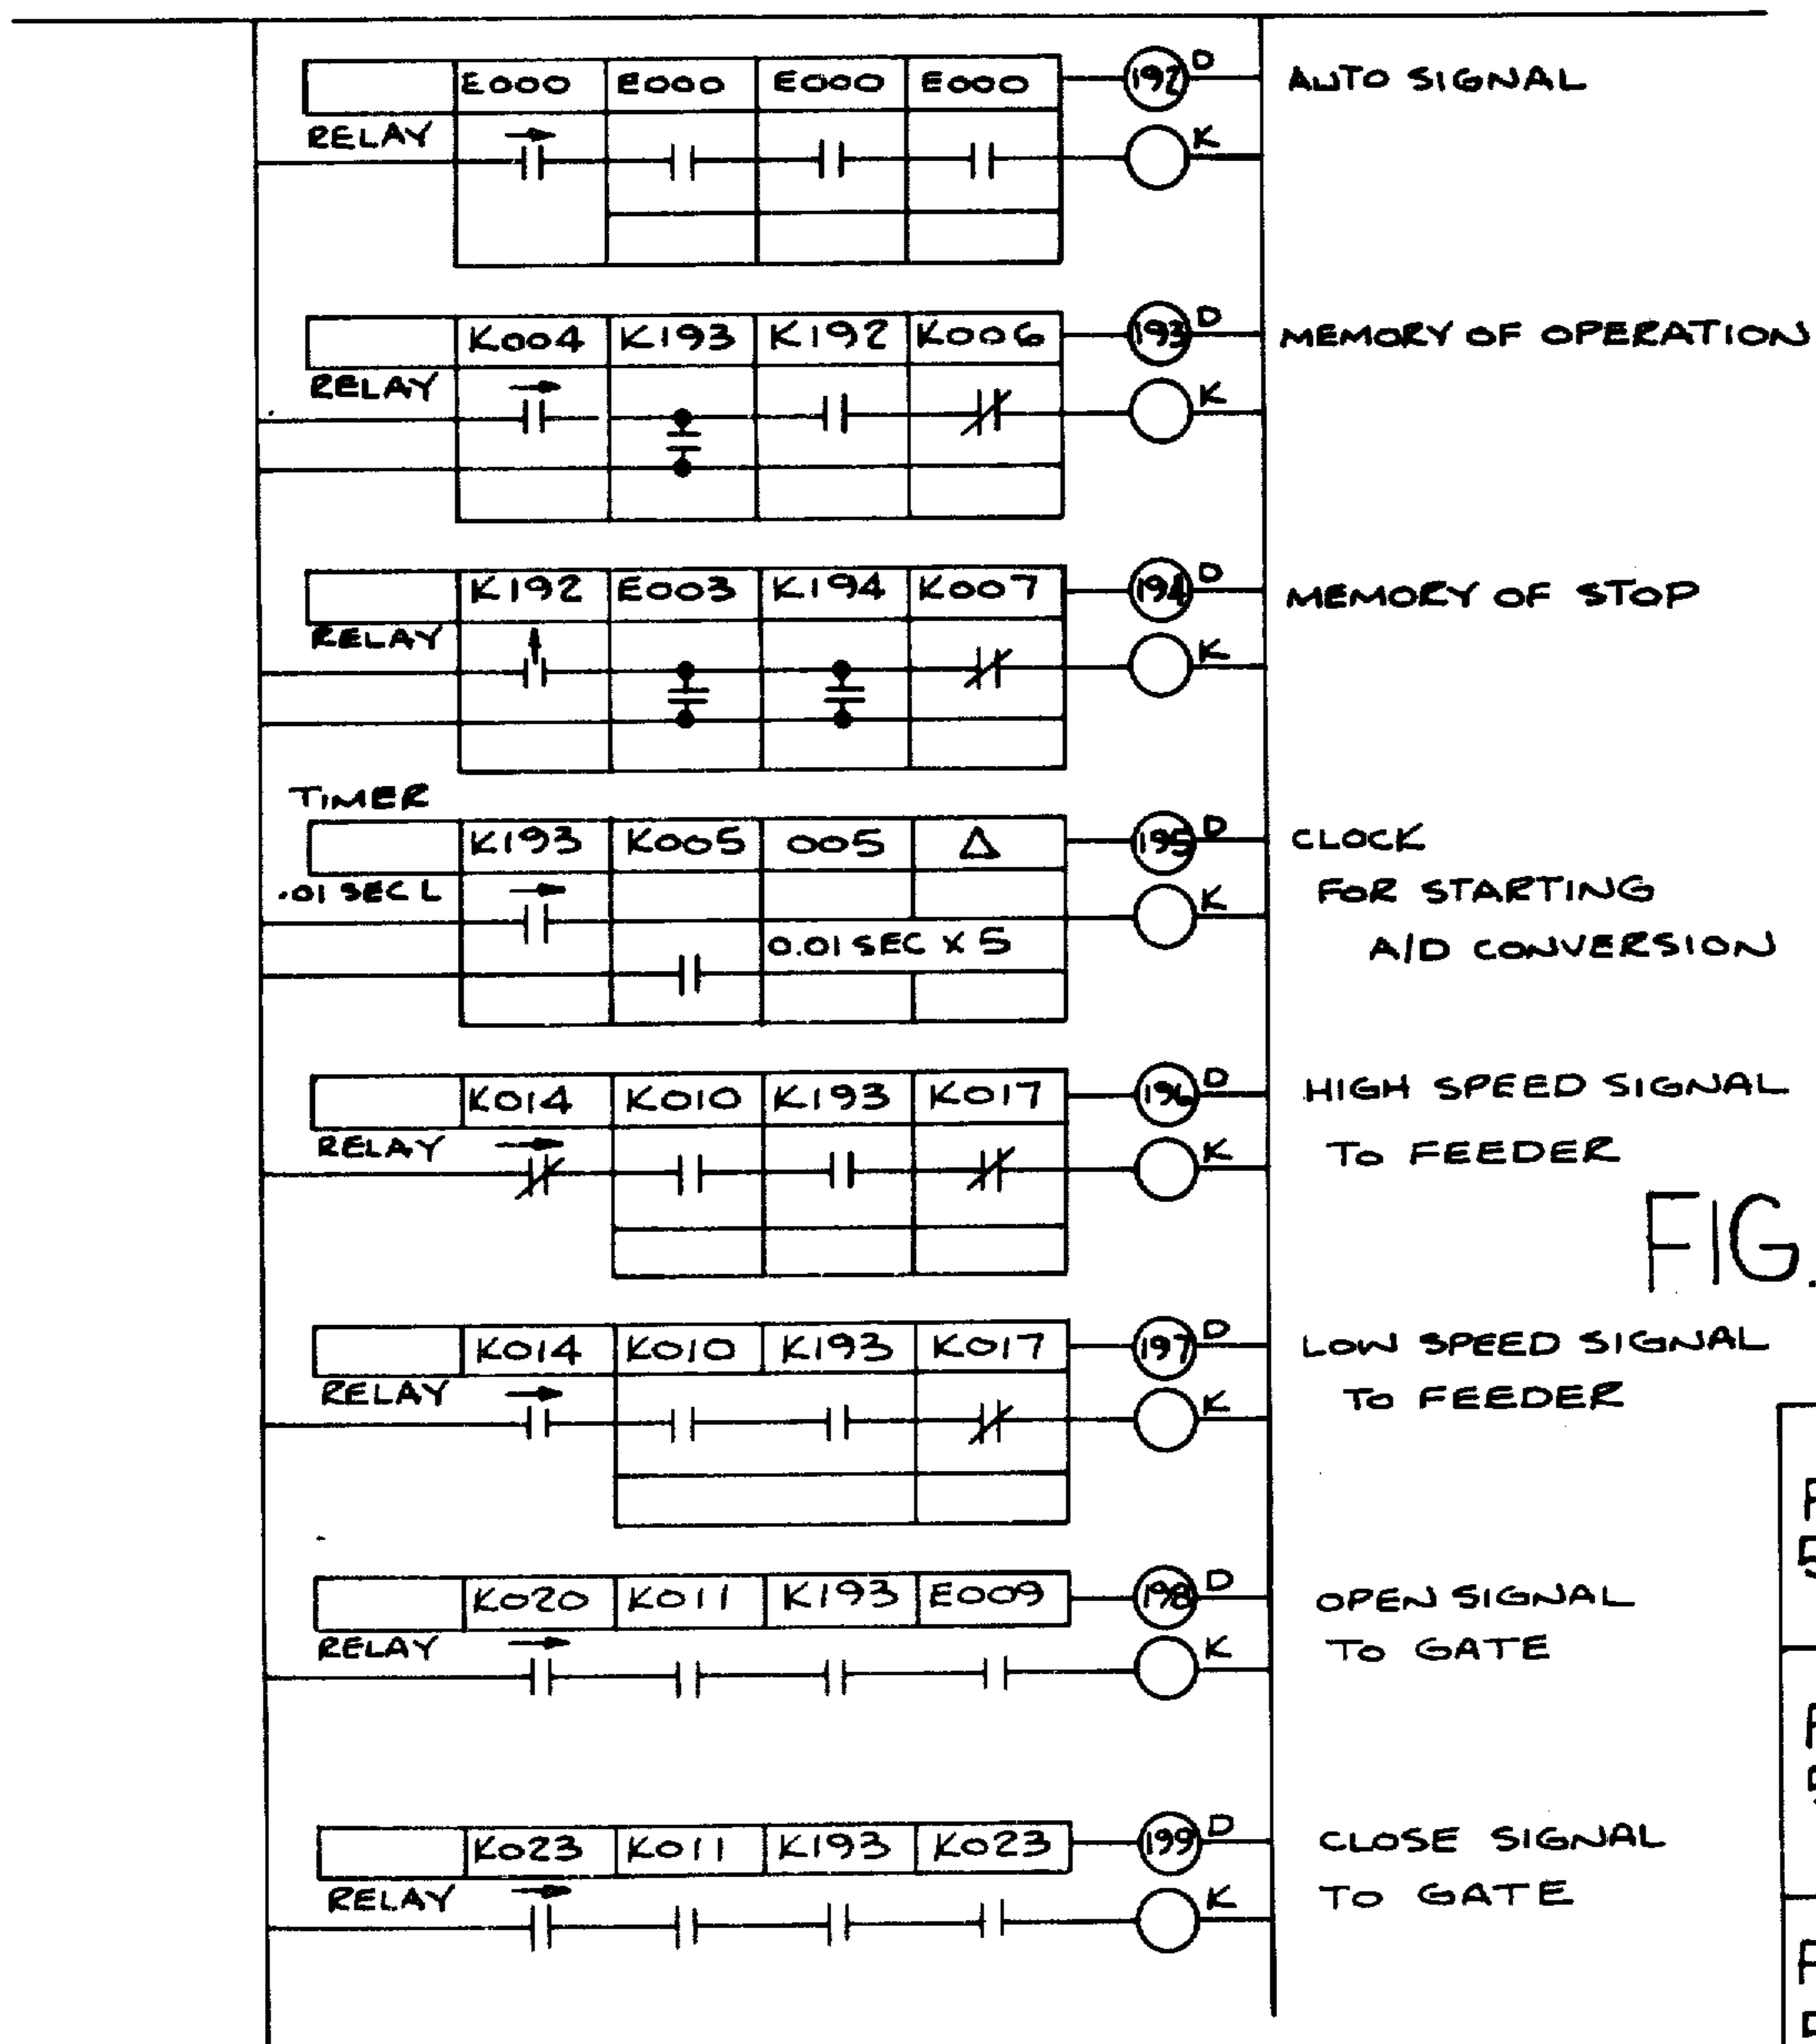 E000 E000 E000 E000 192 D AUTO SIGNAL
RELAY K
K004 K193 K192 K006 193 D MEMORY OF OPERATION
RELAY K
K192 E003 K194 K007 194 D MEMORY OF STOP
RELAY K
TIMER
K193 K005 005 Δ 195 D CLOCK
.01 SEC L K FOR STARTING
0.01 SEC X 5 A/D CONVERSION
K014 K010 K193 K017 196 D HIGH SPEED SIGNAL
RELAY K TO FEEDER
FIG.
K014 K010 K193 K017 197 D LOW SPEED SIGNAL
RELAY K TO FEEDER
K020 K011 K193 E009 198 D OPEN SIGNAL
RELAY K TO GATE
K023 K011 K193 K023 199 D CLOSE SIGNAL
RELAY K TO GATE